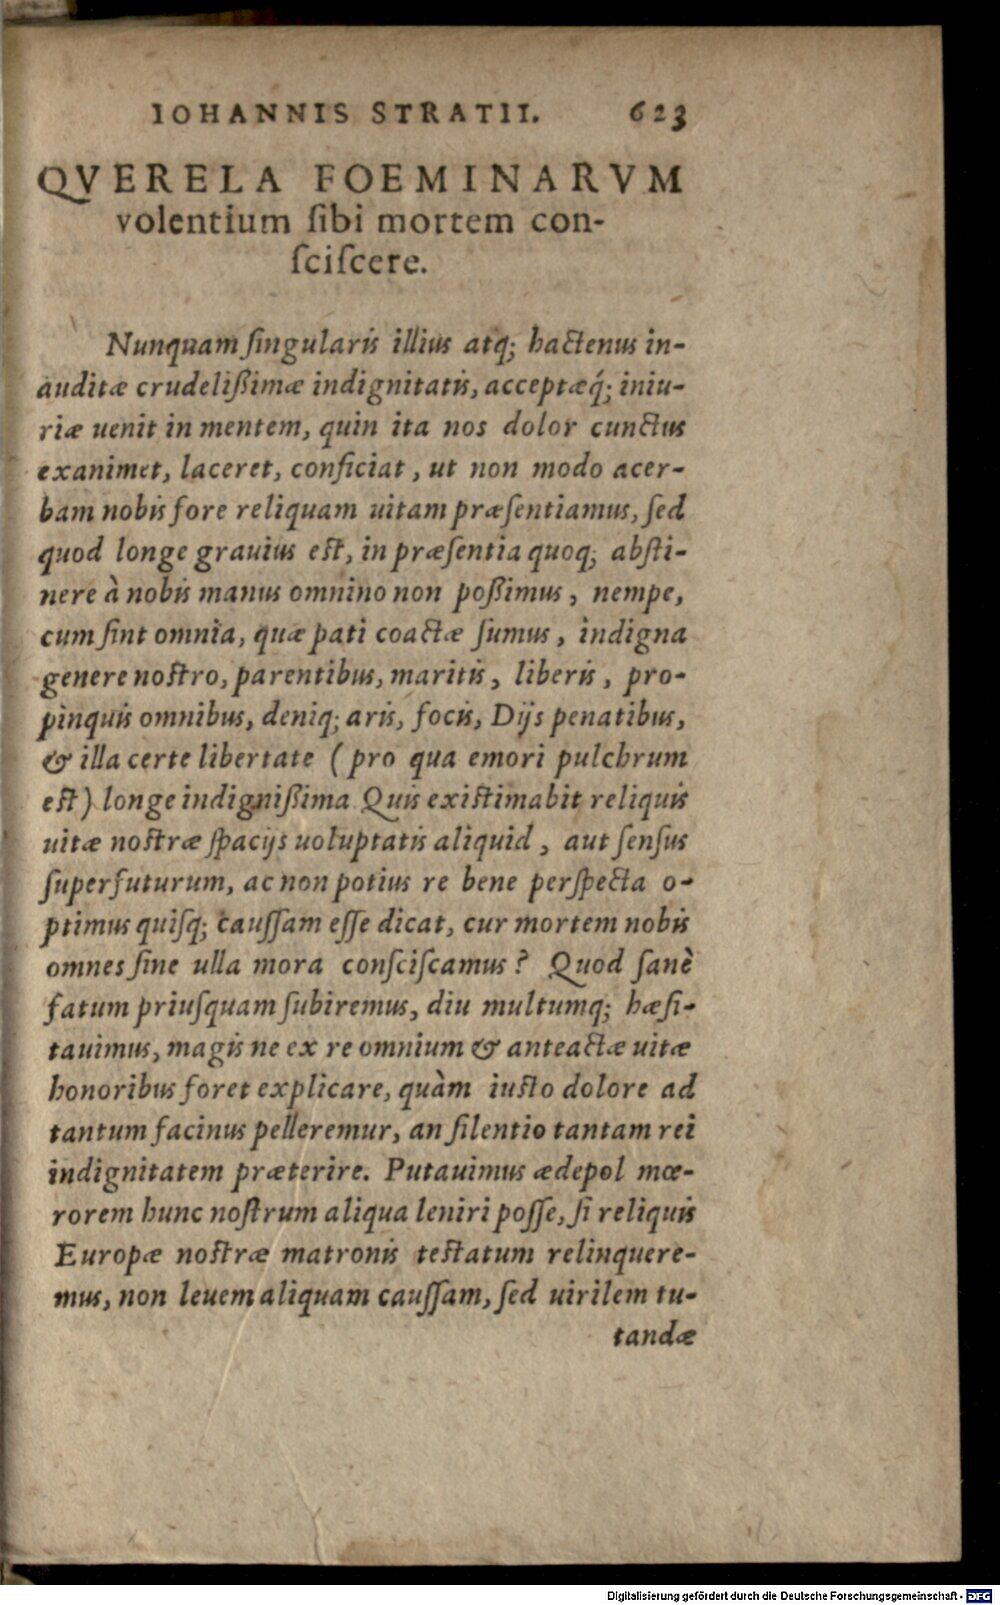 IOHANNIS STRATII. 623
QVERELA FOEMINARVM
volentium ſibi mortem con-
ſciſcere.
Nunquam ſingularis illius atq; hactenus in-
auditæ crudelißimæ indignitatis, acceptæq́; iniu-
riæ uenit in mentem, quin ita nos dolor cunctus
exanimet, laceret, conficiat, ut non modo acer-
bam nobis fore reliquam uitam præſentiamus, ſed
quod longe grauius eſt, in præſentia quoq; abſti-
nere à nobis manus omnino non poßimus, nempe,
cum ſint omnia, quæ pati coactæ ſumus, indigna
genere noſtro, parentibus, maritis, liberis, pro-
pinquis omnibus, deniq; aris, focis, Dijs penatibus,
& illa certe libertate (pro qua emori pulchrum
eſt) longe indignißima Quis exiſtimabit reliquis
uitæ noſtræ ſpacijs uoluptatis aliquid, aut ſenſus
ſuperfuturum, ac non potius re bene perſpecta o-
ptimus quiſq; cauſſam eſſe dicat, cur mortem nobis
omnes ſine ulla mora conſciſcamus? Quod ſanè
fatum priuſquam ſubiremus, diu multumq; hæſi-
tauimus, magis ne ex re omnium & anteactæ uitæ
honoribus foret explicare, quàm iuſto dolore ad
tantum facinus pelleremur, an ſilentio tantam rei
indignitatem præterire. Putauimus ædepol mœ-
rorem hunc noſtrum aliqua leniri poſſe, ſi reliquis
Europæ noſtræ matronis teſtatum relinquere-
mus, non leuem aliquam cauſſam, ſed uirilem tu-
tandæ
Digitalisierung gefördert durch die Deutsche Forschungsgemeinschaft - DFG